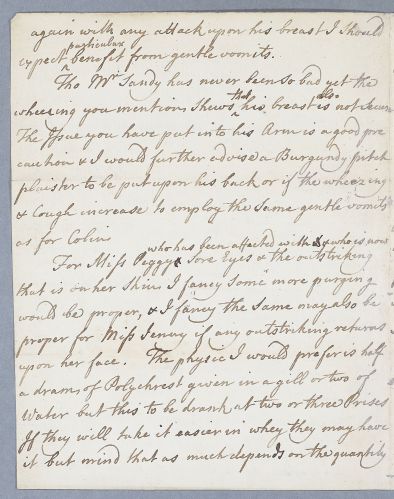 again with any attack upon his breast I should
expect particular benefit from gentle vomits.
Tho Mr Sandy has never been so bad yet the
wheezing you mention shews that his breast also is not secure
The Issue you have put into his Arm is a good pre
caution & I would further advise a Burgundy pitch
plaister to be put upon his back or if the wheezing
& Cough increase to employ the same gentle vomits
as for Colin
For Miss Peggy who has been affected with & who is now sore Eyes & the outstriking
that is on her Skin I fancy some more purging
would be proper, & I fancy the same may also be
proper for Miss Jenny if any outstriking returns
upon her face. The physic I would prefer is half
a dram of Polychrest given in a gill or two of
Water but this to be drank at two or three Prises
If they will take it easier in whey they may have
it but mind that as much depends on the quantity